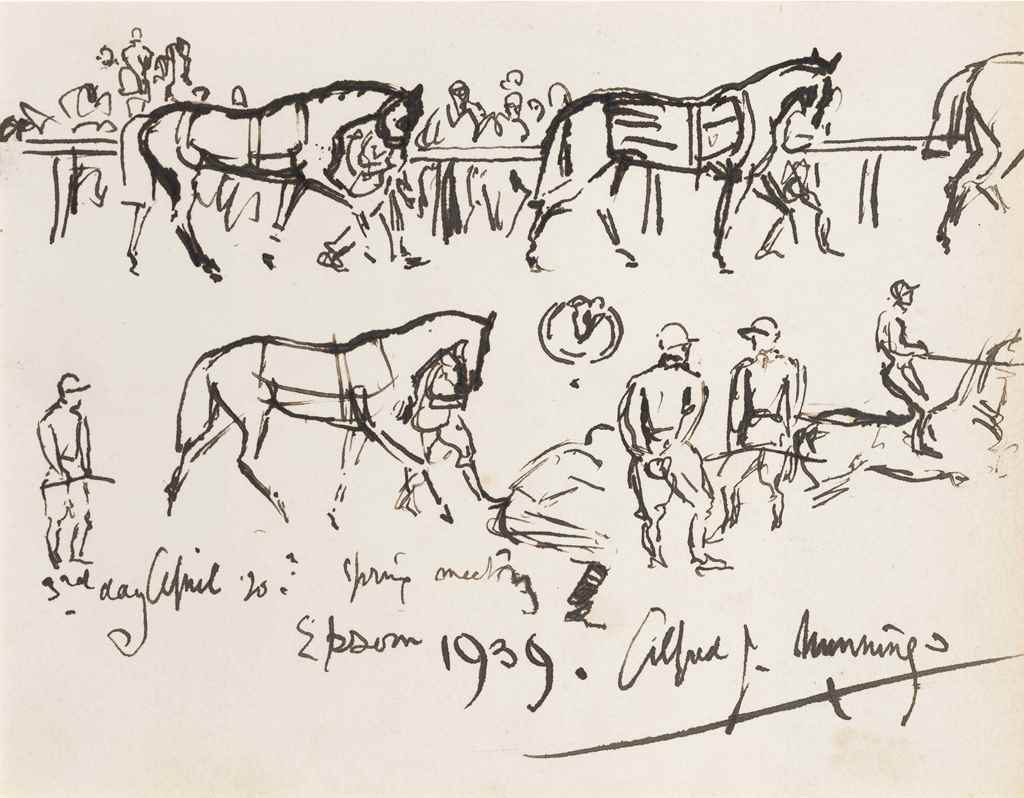 3rd day April 20? Spring meeting
Epsom 1939. Alfred J. Munnings